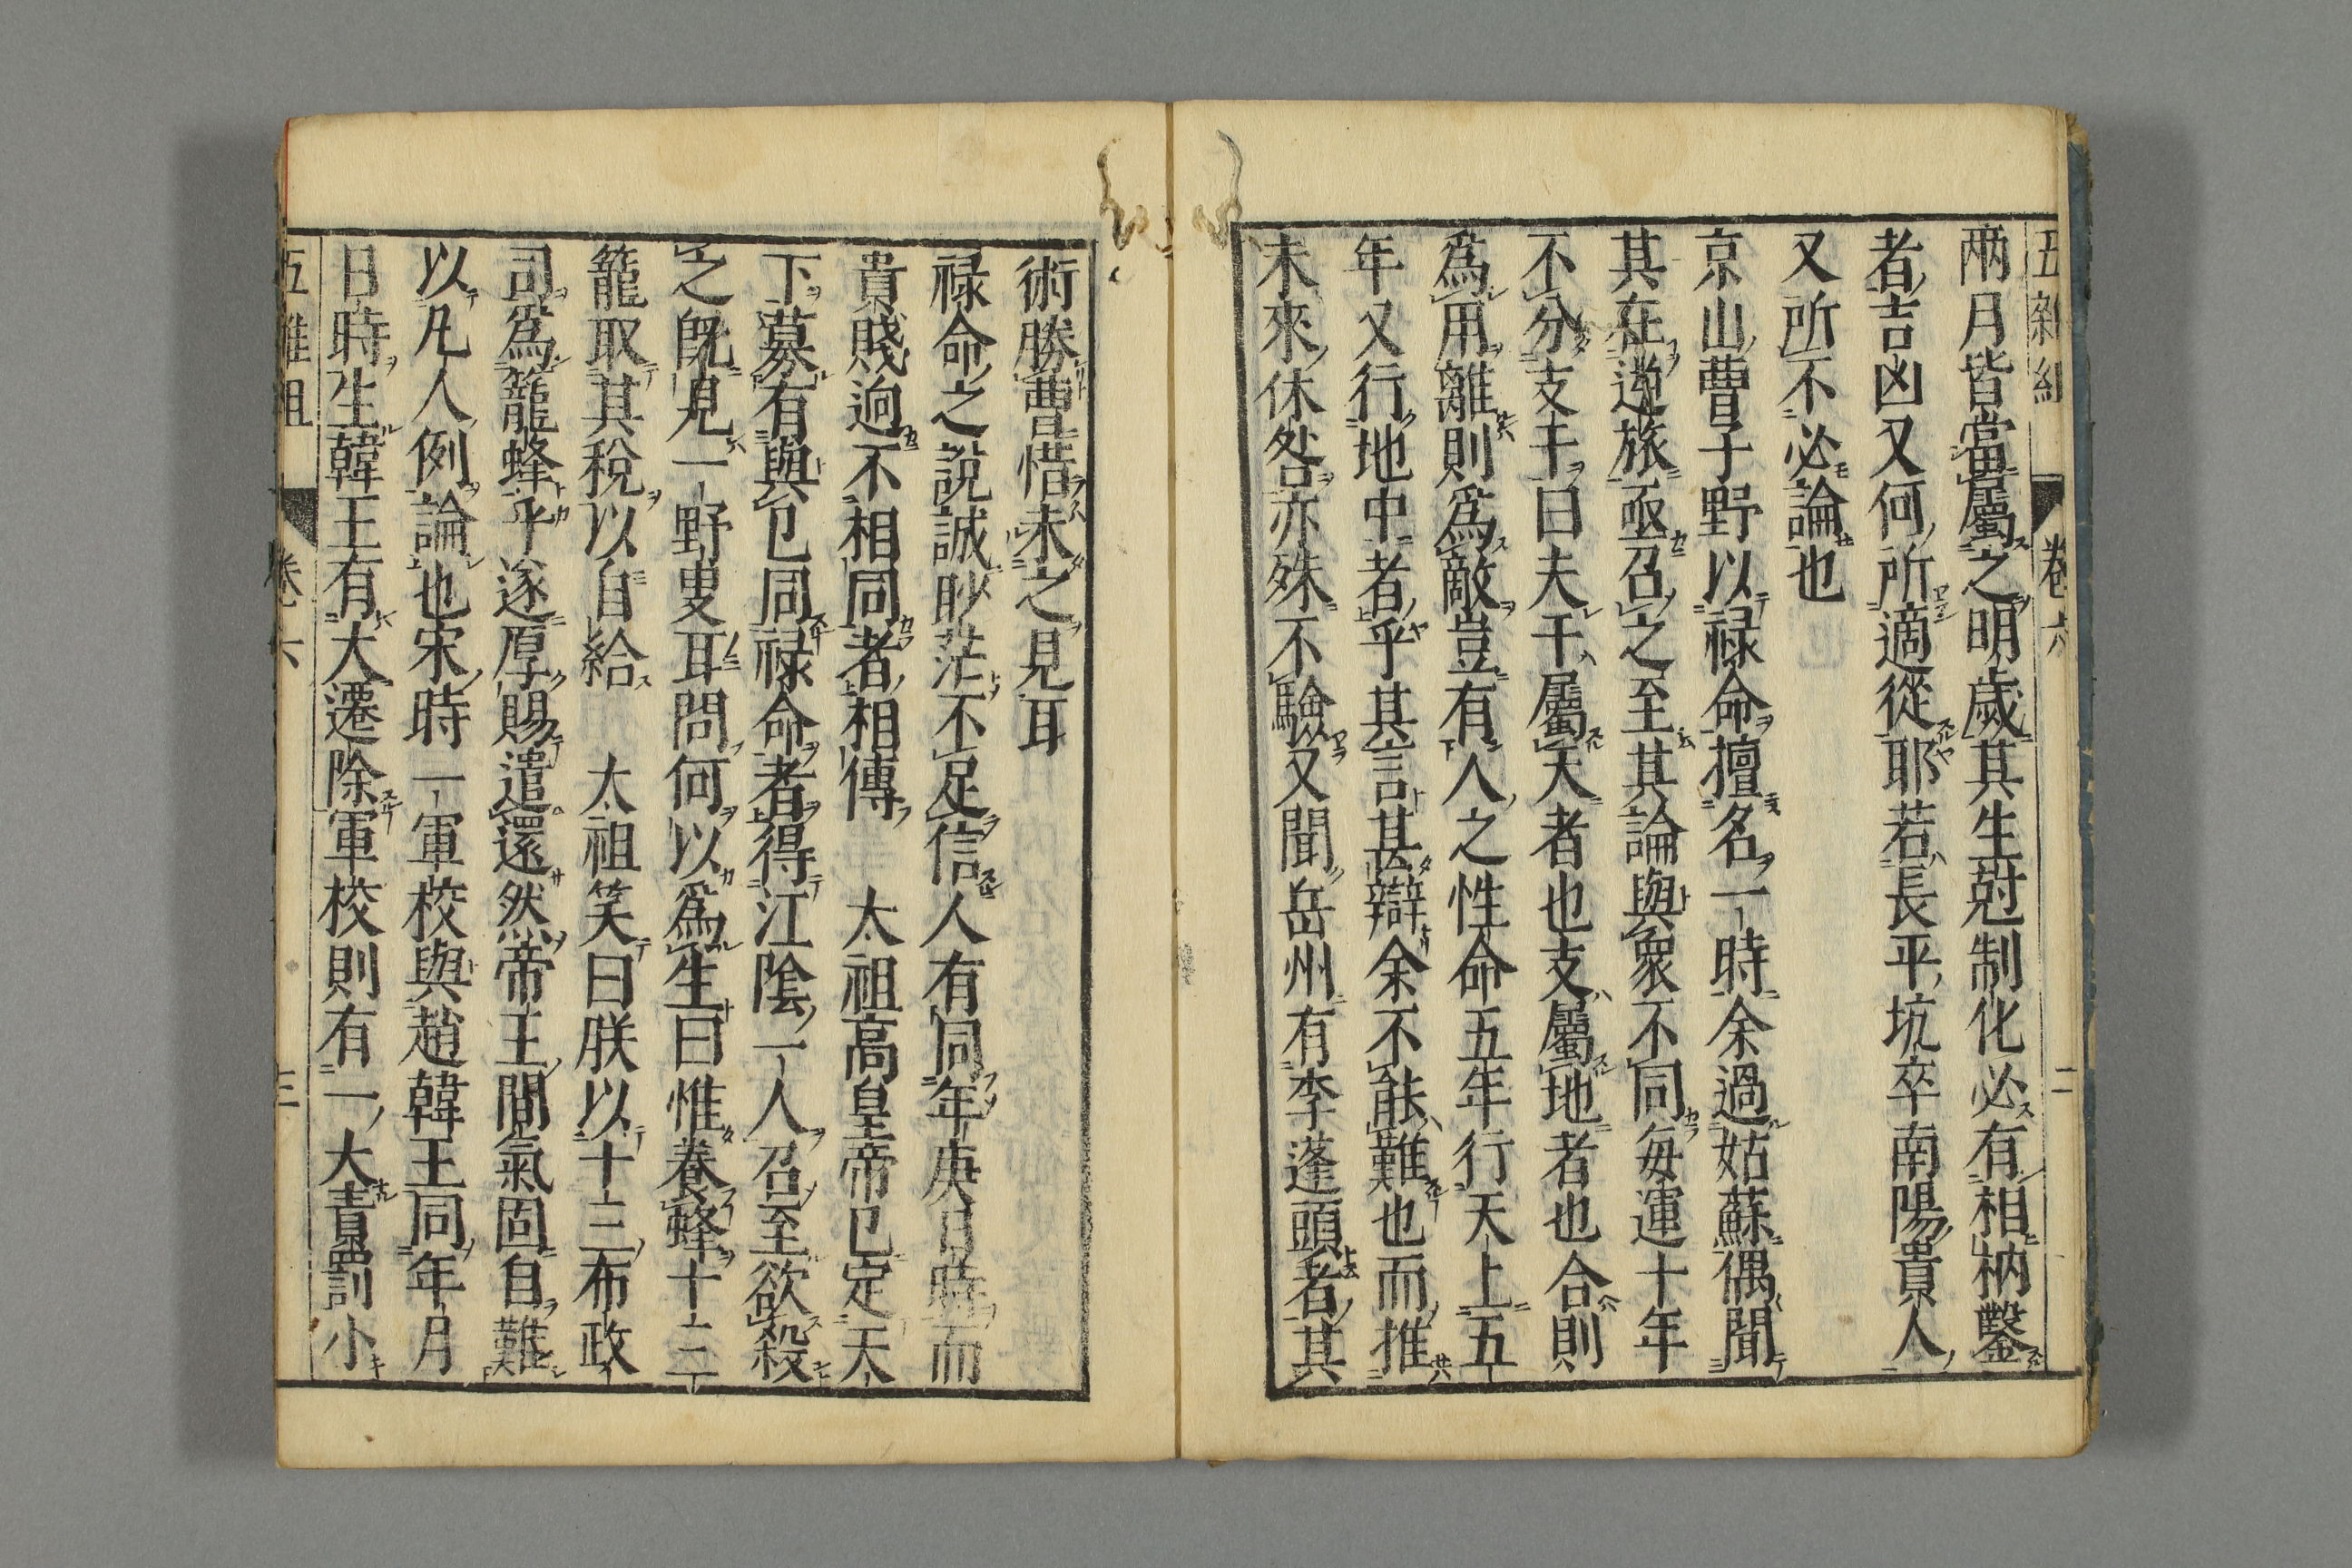 五雜組 卷六 二
兩月皆當屬之明歲其生尅制化必有相枘鑿
者吉凶又何所適從耶若長平坑卒南陽貴人
又所不必論也
京山曹子野以禄命擅名一時余過姑蘇偶聞
其在逆旅亟召之至其論與衆不同每運十年
不分支干曰夫干屬天者也支屬地者也合則
爲用離則爲敵豈有人之性命五年行天上五
年又行地中者乎其言甚辯余不能難也而推
未來休咎亦殊不驗又聞岳州有李蓬頭者其
術勝曹惜未之見耳
禄命之說誠眇茫不足信人有同年庚日時而
貴賤迥不相同者相傳 太祖高皇帝已定天
下募有與已同禄命者得江陰一人召至欲殺
之旣見一野叟耳問何以爲生曰惟養蜂十三
籠取其稅以自給 太祖笑曰朕以十三布政
司爲籠蜂乎遂厚賜遣還然帝王間氣固自難
以凡人例論也宋時一軍校與趙韓王同年月
日時生韓王有大遷除軍校則有一大責罰小
五雜組 卷六 三